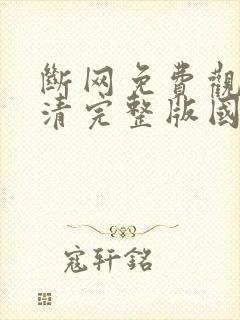 斷网免費觀
清完整版國
寇轩銘